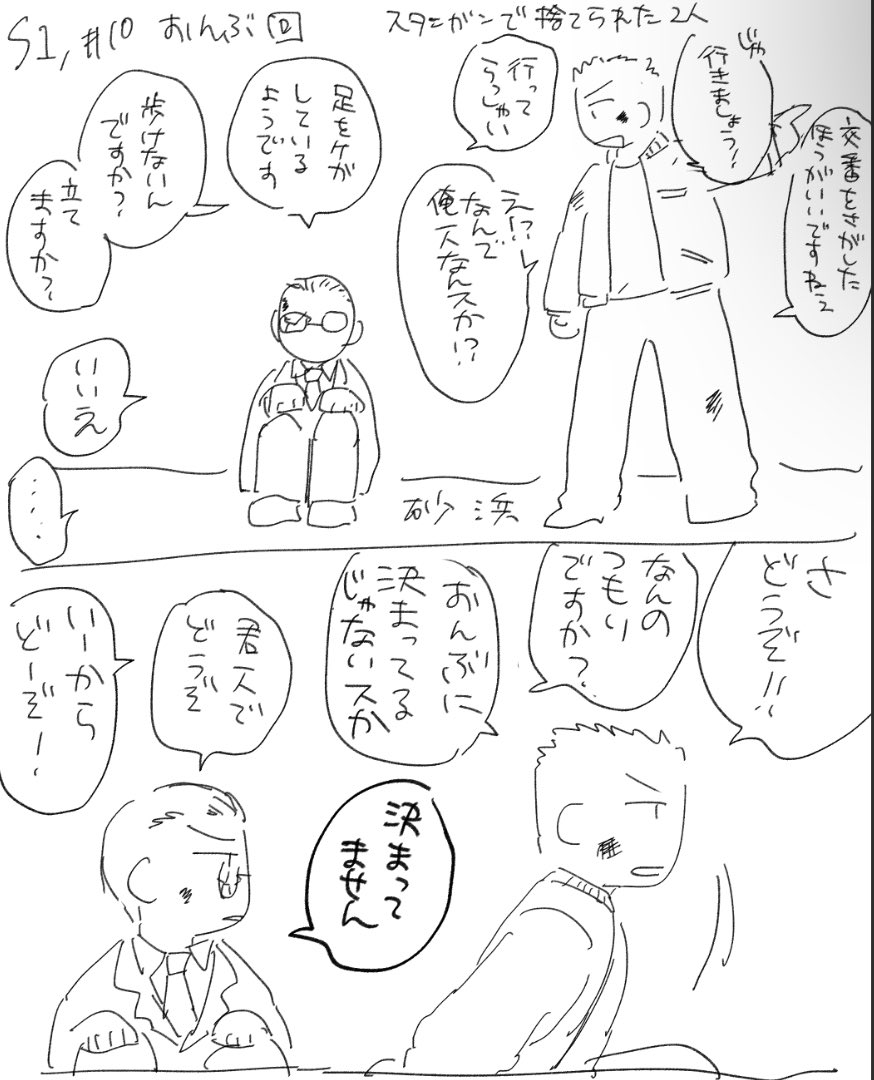 S1, #10 おんぶ回
スタンガンで捨てられた2人
じゃ
行きましょう!
交番をさがした
ほうがいいですねえ
行って
らっしゃい
え!?
なんで
俺一人なんスか!?
足をケガ
している
ようです
歩けないん
ですか?
立て
ますか?
いいえ
・・・・・
砂浜
さ
どうぞ!!
なんの
つもり
ですか?
おんぶに
決まってる
じゃないスか
決まって
ません
君一人で
どうぞ
いーから
どーぞ!